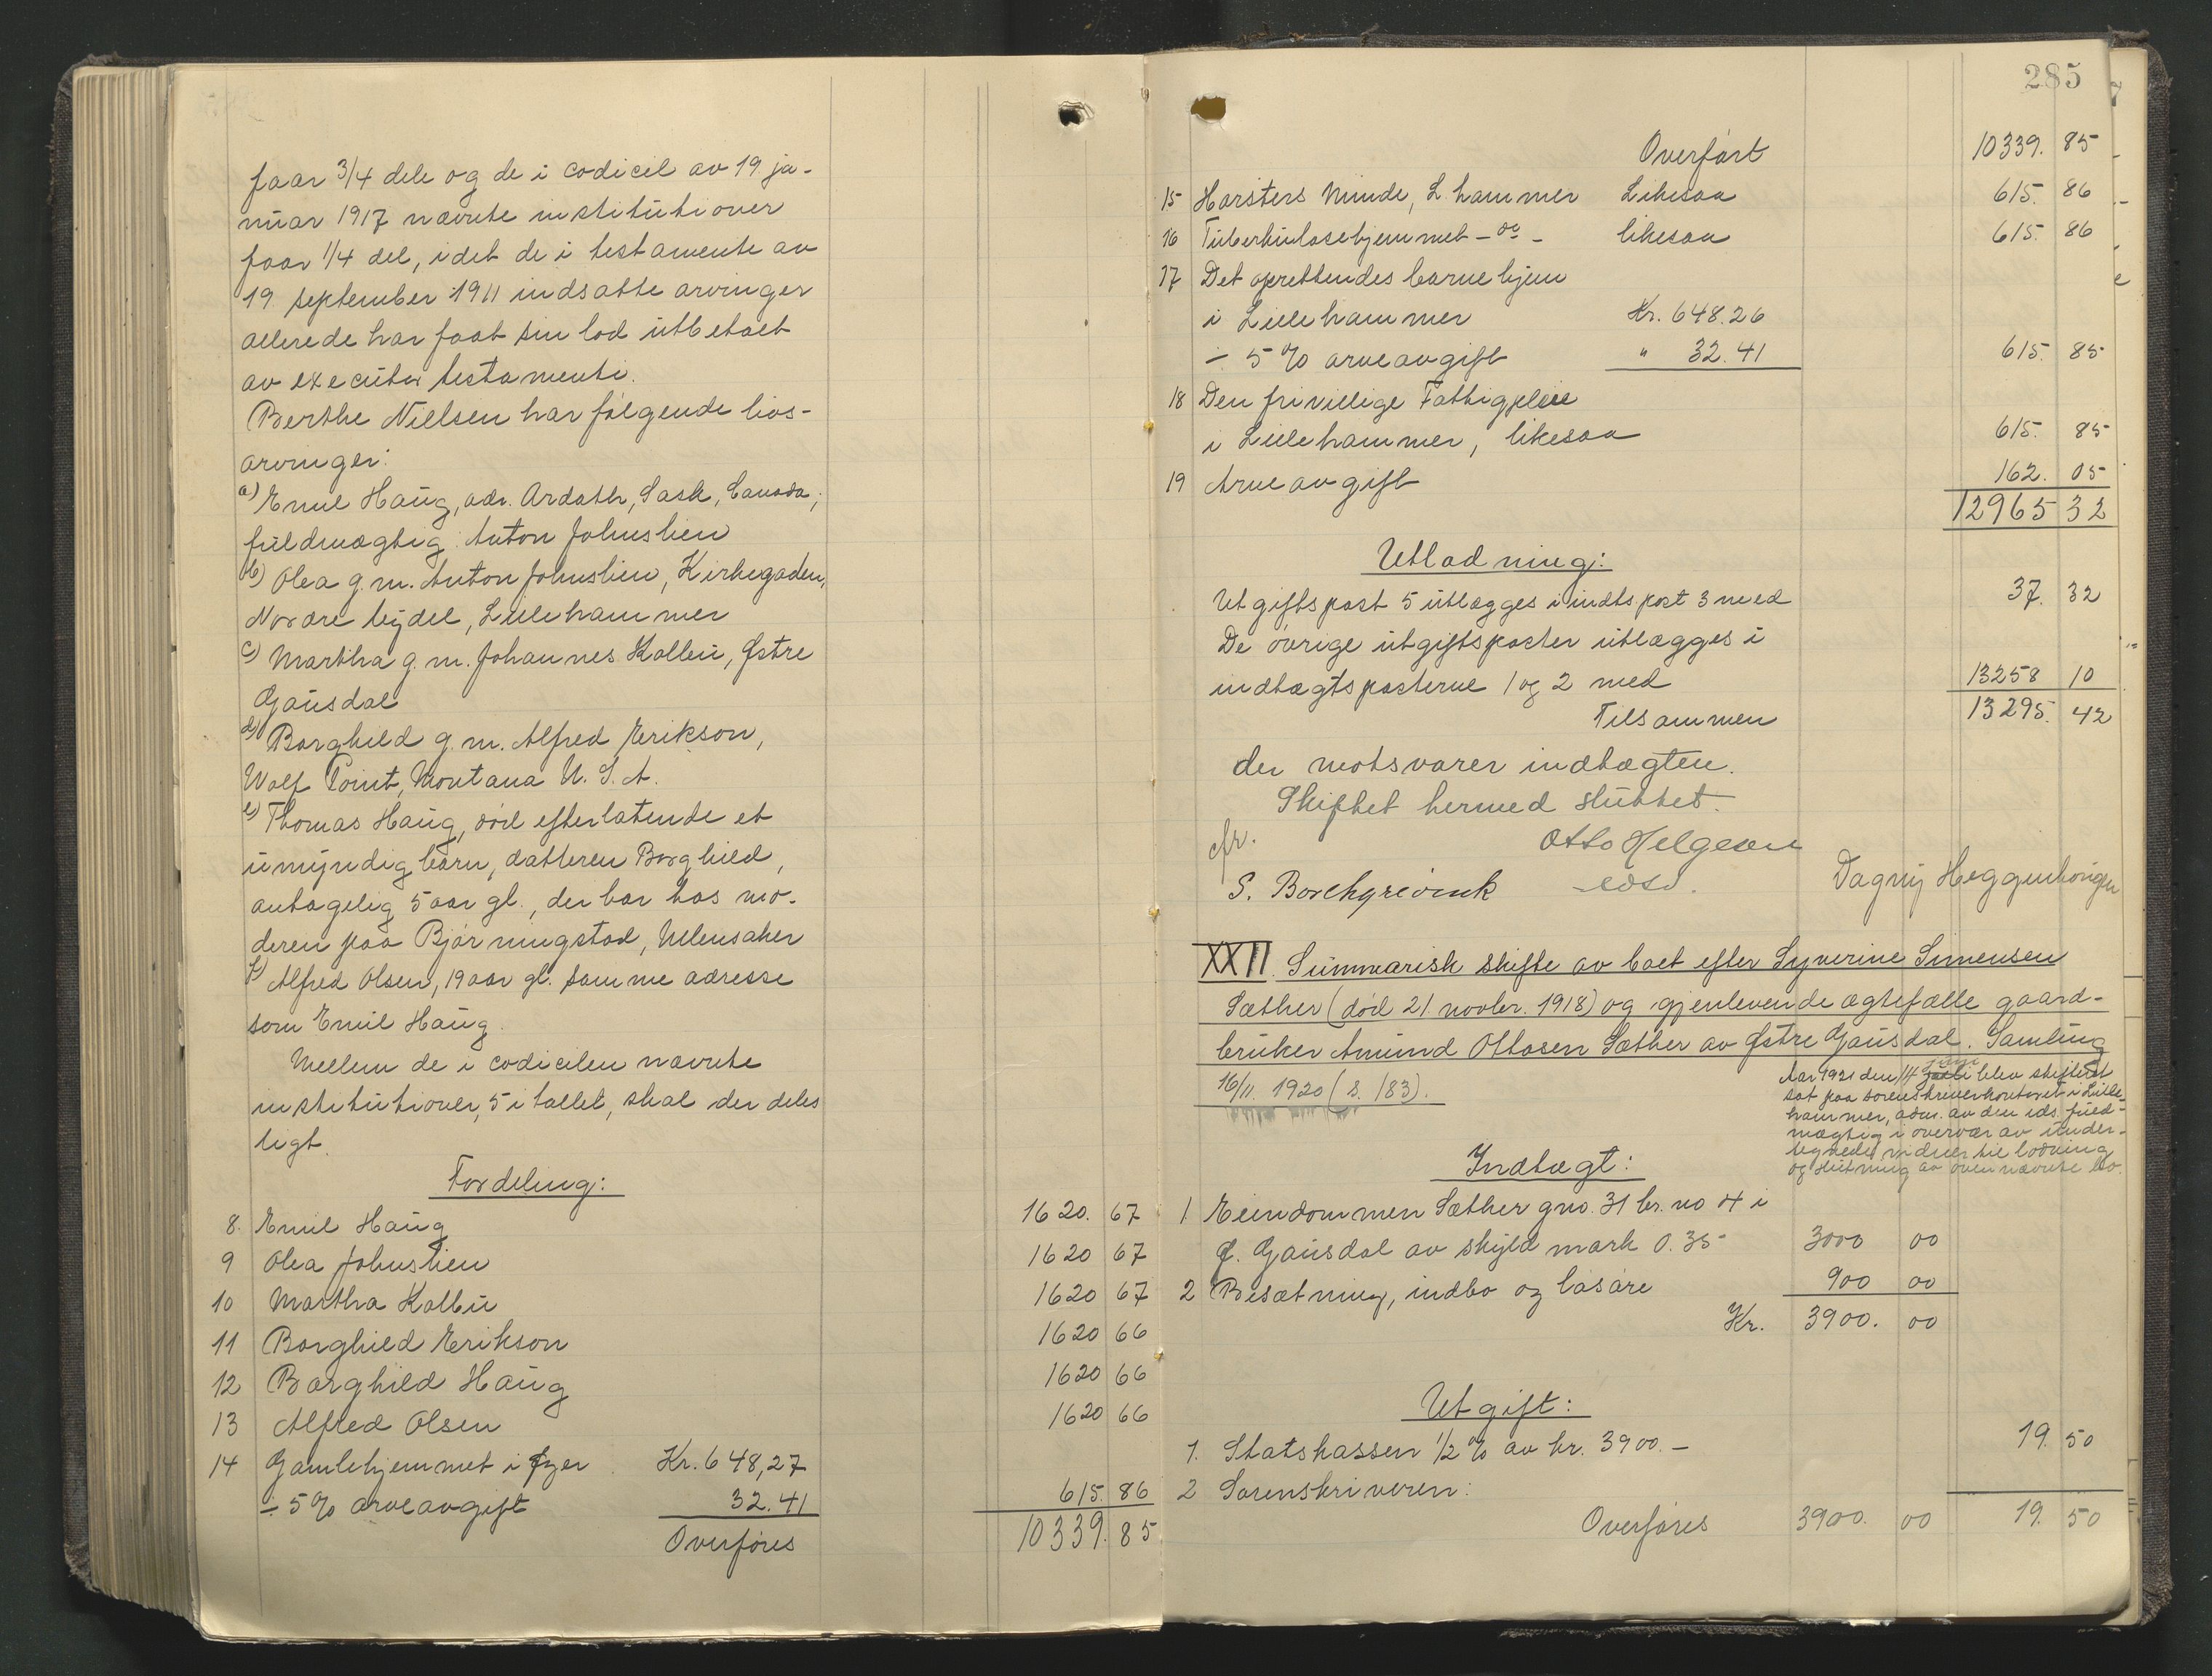 faar 3/4 dele og de i codicil av 19. ja-
nuar 1917 nævnte institutioner
faar 1/4 del, idet de i testamente av
19. september 1911 indsatte arvinger
allerede har faat sin lod utbetalt
av executor testamenti.
Berthe Nielsen har følgende livs-
arvinger:
a) Emil Haug, adr. Ardath, Sask, Canada,
fuldmægtig: Anton Johnslien
b) Olea g. m. Anton Johnslien, Kirkegaden,
Nordre bydel, Lillehammer
c) Martha g. m. Johannes Kalbu, Østre
Gausdal
d) Borghild g. m. Alfred Erikson,
Wolf Point, Montana U. S. A.
e) Thomas Haug, død efterlatende et
umyndig barn, datteren Borghild,
antagelig 5 aar gl., der bor hos mo-
deren paa Bjørningstad, Ullensaker
f) Alfred Olsen, 19 aar gl. samme adresse
som Emil Haug.
Mellem de i codicilen nævnte
institutioner, 5 i tallet, skal der deles
likt.
Fordeling:
8. Emil Haug 1620. 67
9 Olea Johnslien 1620 67
10 Martha Kalbu 1620 67
11 Borghild Erikson 1620 66
12 Borghild Haug 1620 66
13 Alfred Olsen 1620 66
14 Gamlehjemmet i Øyer Kr. 648,27
÷ 5% arveavgift 32.41 615. 86
Overføres 10339. 85
285
Overført 10339. 85
15 Harsters Minde, L.hammer Likesaa 615. 86
16 Tuberkulosehjemmet - do - likesaa 615. 86
17 Det oprettendes barnehjem
i Lillehammer Kr. 648.26
÷ 5% arveavgift " 32.41 615. 85
18 Den frivillige Fattigpleie
i Lillehammer, likesaa 615. 85
19 Arveavgift 162. 05
12965 32
Utlodning:
Utgiftspost 5 utlægges i indtspost 3 med 37. 32
De øvrige utgiftsposter utlægges i
indtægtsposterne 1 og 2 med 13258 10
Tilsammen 13295. 42
der motsvarer indtægten.
Skiftet hermed sluttet.
Otto Helgesen
S. Borchgrevink edsv. Dagny Heggenhougen
XXII. Summarisk skifte av boet efter Syverine Simensen
Sæther (død 21. novbr. 1918) og gjenlevende ægtefælle gaard-
bruker Amund Ottosen Sæther av Østre Gausdal. Samling
16/11. 1920 (s. 183).
Aar 1921 den 14 juli juni blev skifteret
sat paa sorenskriverkontoret i Lille-
hammer, adm. av den eds. fuld-
mægtig i overvær av under-
tegnede vidner til lodning
og slutning av ovennævnte bo.
Indtægt:
1. Eiendommen Sæther gno. 31 br. no 4 i
Ø. Gausdal av skyld mark 0.35 3000 00
2 Besætning, indbo og løsøre 900 00
Kr. 3900. 00
Utgift:
1. Statskassen 1/2 % av kr. 3900. - 19. 50
2 Sorenskriveren:
Overføres 3900. 00 19. 50